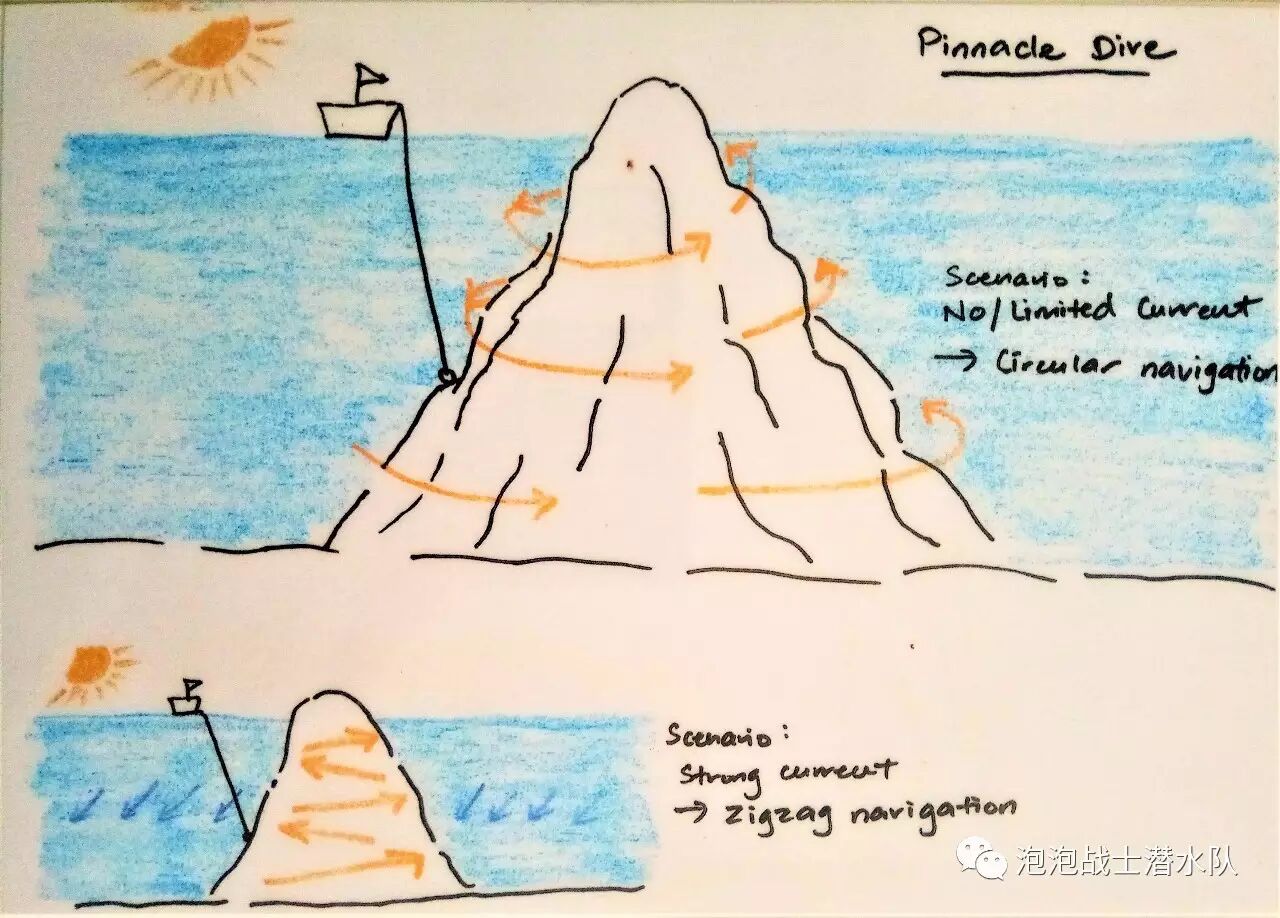 Pinnacle Dive
Scenario:
No/Limited Current
→ Circular navigation
Scenario:
Strong current
→ Zigzag navigation
泡泡战士潜水队